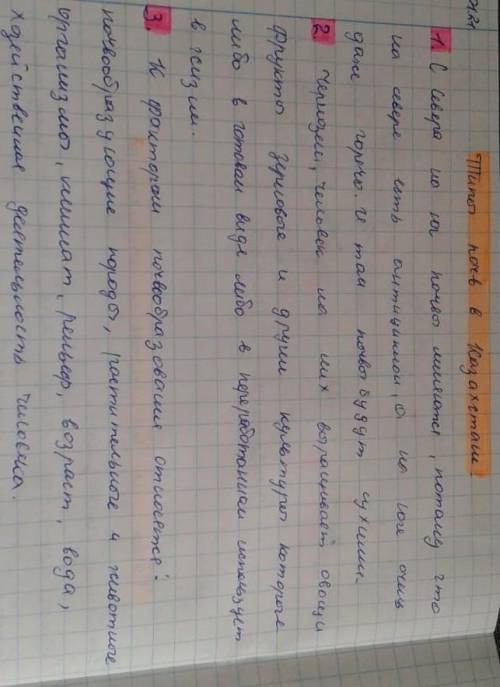 Типы почв в Казахстане!
1. С севера на юг почвы меняются, потому что
на севере есть антициклон, а на юге очень
даже горячо. И там почвы будут сухими.
2. Чернозём, человек на них выращивает овощи
фрукты зерновые и другие культуры которые
либо в готовом виде либо в переработанном использует
в жизни.
3. К факторам почвообразования относятся:
почвообразующие породы, растительные и животные
организмы, климат, рельеф, возраст, вода,
хозяйственная деятельность человека.